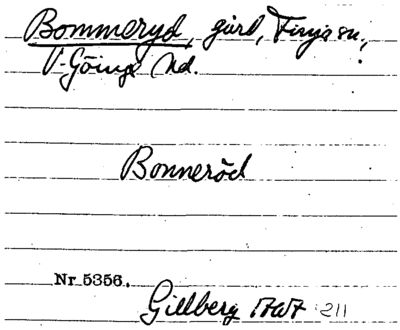 Bommeryd, gård, Finja sn.,
V-Göinge hd.
Bonneröd
Nr 5356.
Gillberg 1767 211